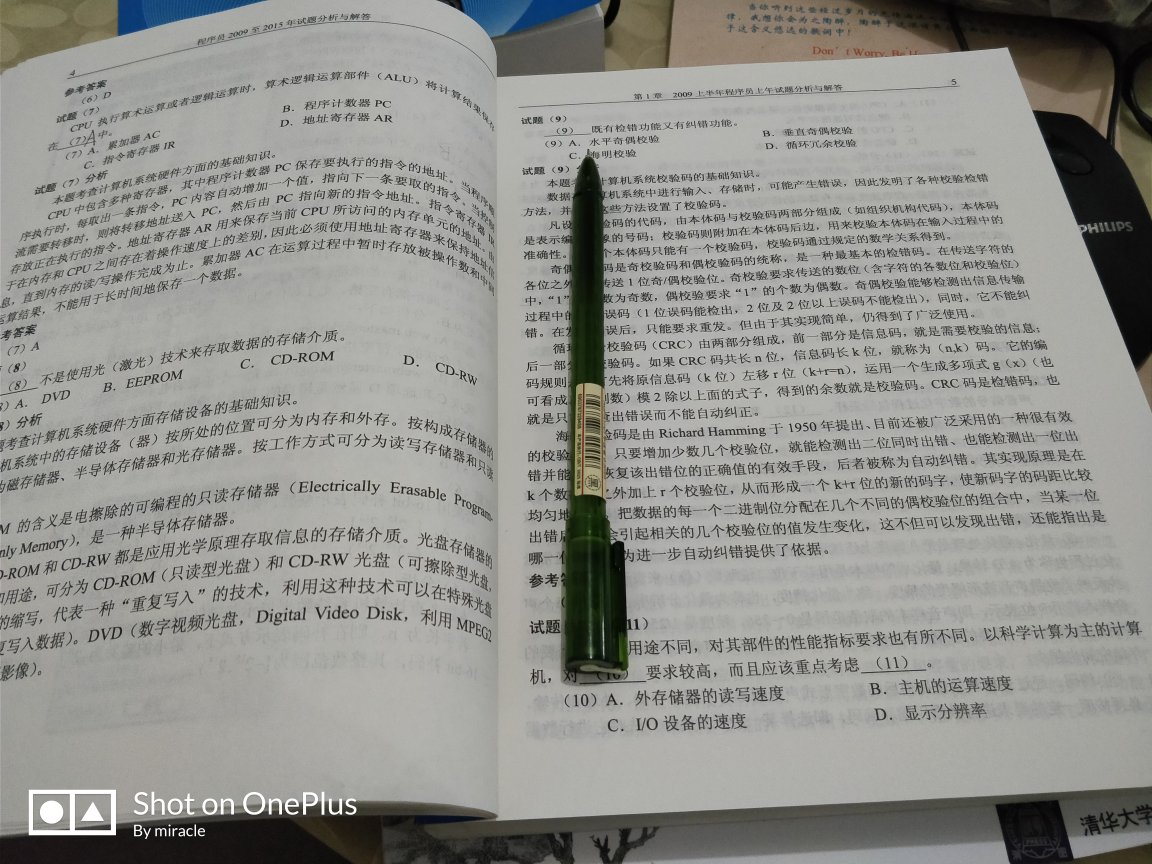 4 程序员 2009 至 2015 年试题分析与解答
参考答案
（6）D
试题（7）
CPU 执行算术运算或者逻辑运算时，算术逻辑运算部件（ALU）将计算结果保存
在 （7）A 中。
（7）A．累加器 AC B．程序计数器 PC
C．指令寄存器 IR D．地址寄存器 AR
试题（7）分析
本题考查计算机系统硬件方面的基础知识。
CPU 中包含多种寄存器，其中程序计数器 PC 保存要执行的指令的地址。当程序顺
序执行时，每取出一条指令，PC 内容自动增加一个值，指向下一条要取的指令。当程序
流需要转移时，则将转移地址送入 PC，然后由 PC 指向新的指令地址。指令寄存器 IR
存放正在执行的指令。地址寄存器 AR 用来保存当前 CPU 所访问的内存单元的地址。由
于在内存和 CPU 之间存在着操作速度上的差别，因此必须使用地址寄存器来保持地址信
息，直到内存的读/写操作完成为止。累加器 AC 在运算过程中暂时存放被操作数和中间
运算结果，不能用于长时间地保存一个数据。
考答案
（7）A
（8）
（8） 不是使用光（激光）技术来存取数据的存储介质。
）A．DVD B．EEPROM C．CD-ROM D．CD-RW
8）分析
考查计算机系统硬件方面存储设备的基础知识。
机系统中的存储设备（器）按所处的位置可分为内存和外存。按构成存储器的
磁存储器、半导体存储器和光存储器。按工作方式可分为读写存储器和只读
M 的含义是电擦除的可编程的只读存储器（Electrically Erasable Program-
nly Memory），是一种半导体存储器。
D-ROM 和 CD-RW 都是应用光学原理存取信息的存储介质。光盘存储器的
用途，可分为 CD-ROM（只读型光盘）和 CD-RW 光盘（可擦除型光盘，
的缩写，代表一种“重复写入”的技术，利用这种技术可以在特殊光盘
复写入数据）。DVD（数字视频光盘，Digital Video Disk，利用 MPEG2
影像）。
第 1 章 2009 上半年程序员上午试题分析与解答 5
试题（9）
（9） 既有检错功能又有纠错功能。
（9）A．水平奇偶校验 B．垂直奇偶校验
C．海明校验 D．循环冗余校验
试题（9）
本题考 计算机系统校验码的基础知识。
数据 算机系统中进行输入、存储时，可能产生错误，因此发明了各种校验检错
方法，并 这些方法设置了校验码。
凡设 验码的代码，由本体码与校验码两部分组成（如组织机构代码），本体码
是表示编 象的号码；校验码则附加在本体码后边，用来校验本体码在输入过程中的
准确性。 个本体码只能有一个校验码，校验码通过规定的数学关系得到。
奇偶 码是奇校验码和偶校验码的统称，是一种最基本的检错码。在传送字符的
各位之外 传送 1 位奇/偶校验位。奇校验要求传送的数位（含字符的各数位和校验位）
中，“1” 数为奇数，偶校验要求“1”的个数为偶数。奇偶校验能够检测出信息传输
过程中的 误码（1 位误码能检出，2 位及 2 位以上误码不能检出），同时，它不能纠
错。在发 误后，只能要求重发。但由于其实现简单，仍得到了广泛使用。
循 校验码（CRC）由两部分组成，前一部分是信息码，就是需要校验的信息；
后一部 验码。如果 CRC 码共长 n 位，信息码长 k 位，就称为（n,k）码。它的编
码规则 先将原信息码（k 位）左移 r 位（k+r=n），运用一个生成多项式 g（x）（也
可看成 数）模 2 除以上面的式子，得到的余数就是校验码。CRC 码是检错码，也
就是只 查出错误而不能自动纠正。
海 验码是由 Richard Hamming 于 1950 年提出、目前还被广泛采用的一种很有效
的校验 只要增加少数几个校验位，就能检测出二位同时出错、也能检测出一位出
错并能 恢复该出错位的正确值的有效手段，后者被称为自动纠错。其实现原理是在
k 个数 之外加上 r 个校验位，从而形成一个 k+r 位的新的码字，使新码字的码距比较
均匀地 把数据的每一个二进制位分配在几个不同的偶校验位的组合中，当某一位
出错后 会引起相关的几个校验位的值发生变化，这不但可以发现出错，还能指出是
哪一 为进一步自动纠错提供了依据。
参考答
试题 11）
用途不同，对其部件的性能指标要求也有所不同。以科学计算为主的计算
机，对 （10） 要求较高，而且应该重点考虑 （11） 。
（10）A．外存储器的读写速度 B．主机的运算速度
C．I/O 设备的速度 D．显示分辨率
Don't Worry, Be
PHILIPS
清华大学
Shot on OnePlus
By miracle